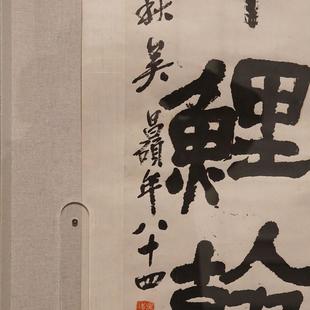 鯉翰
秋吳昌碩年八十四